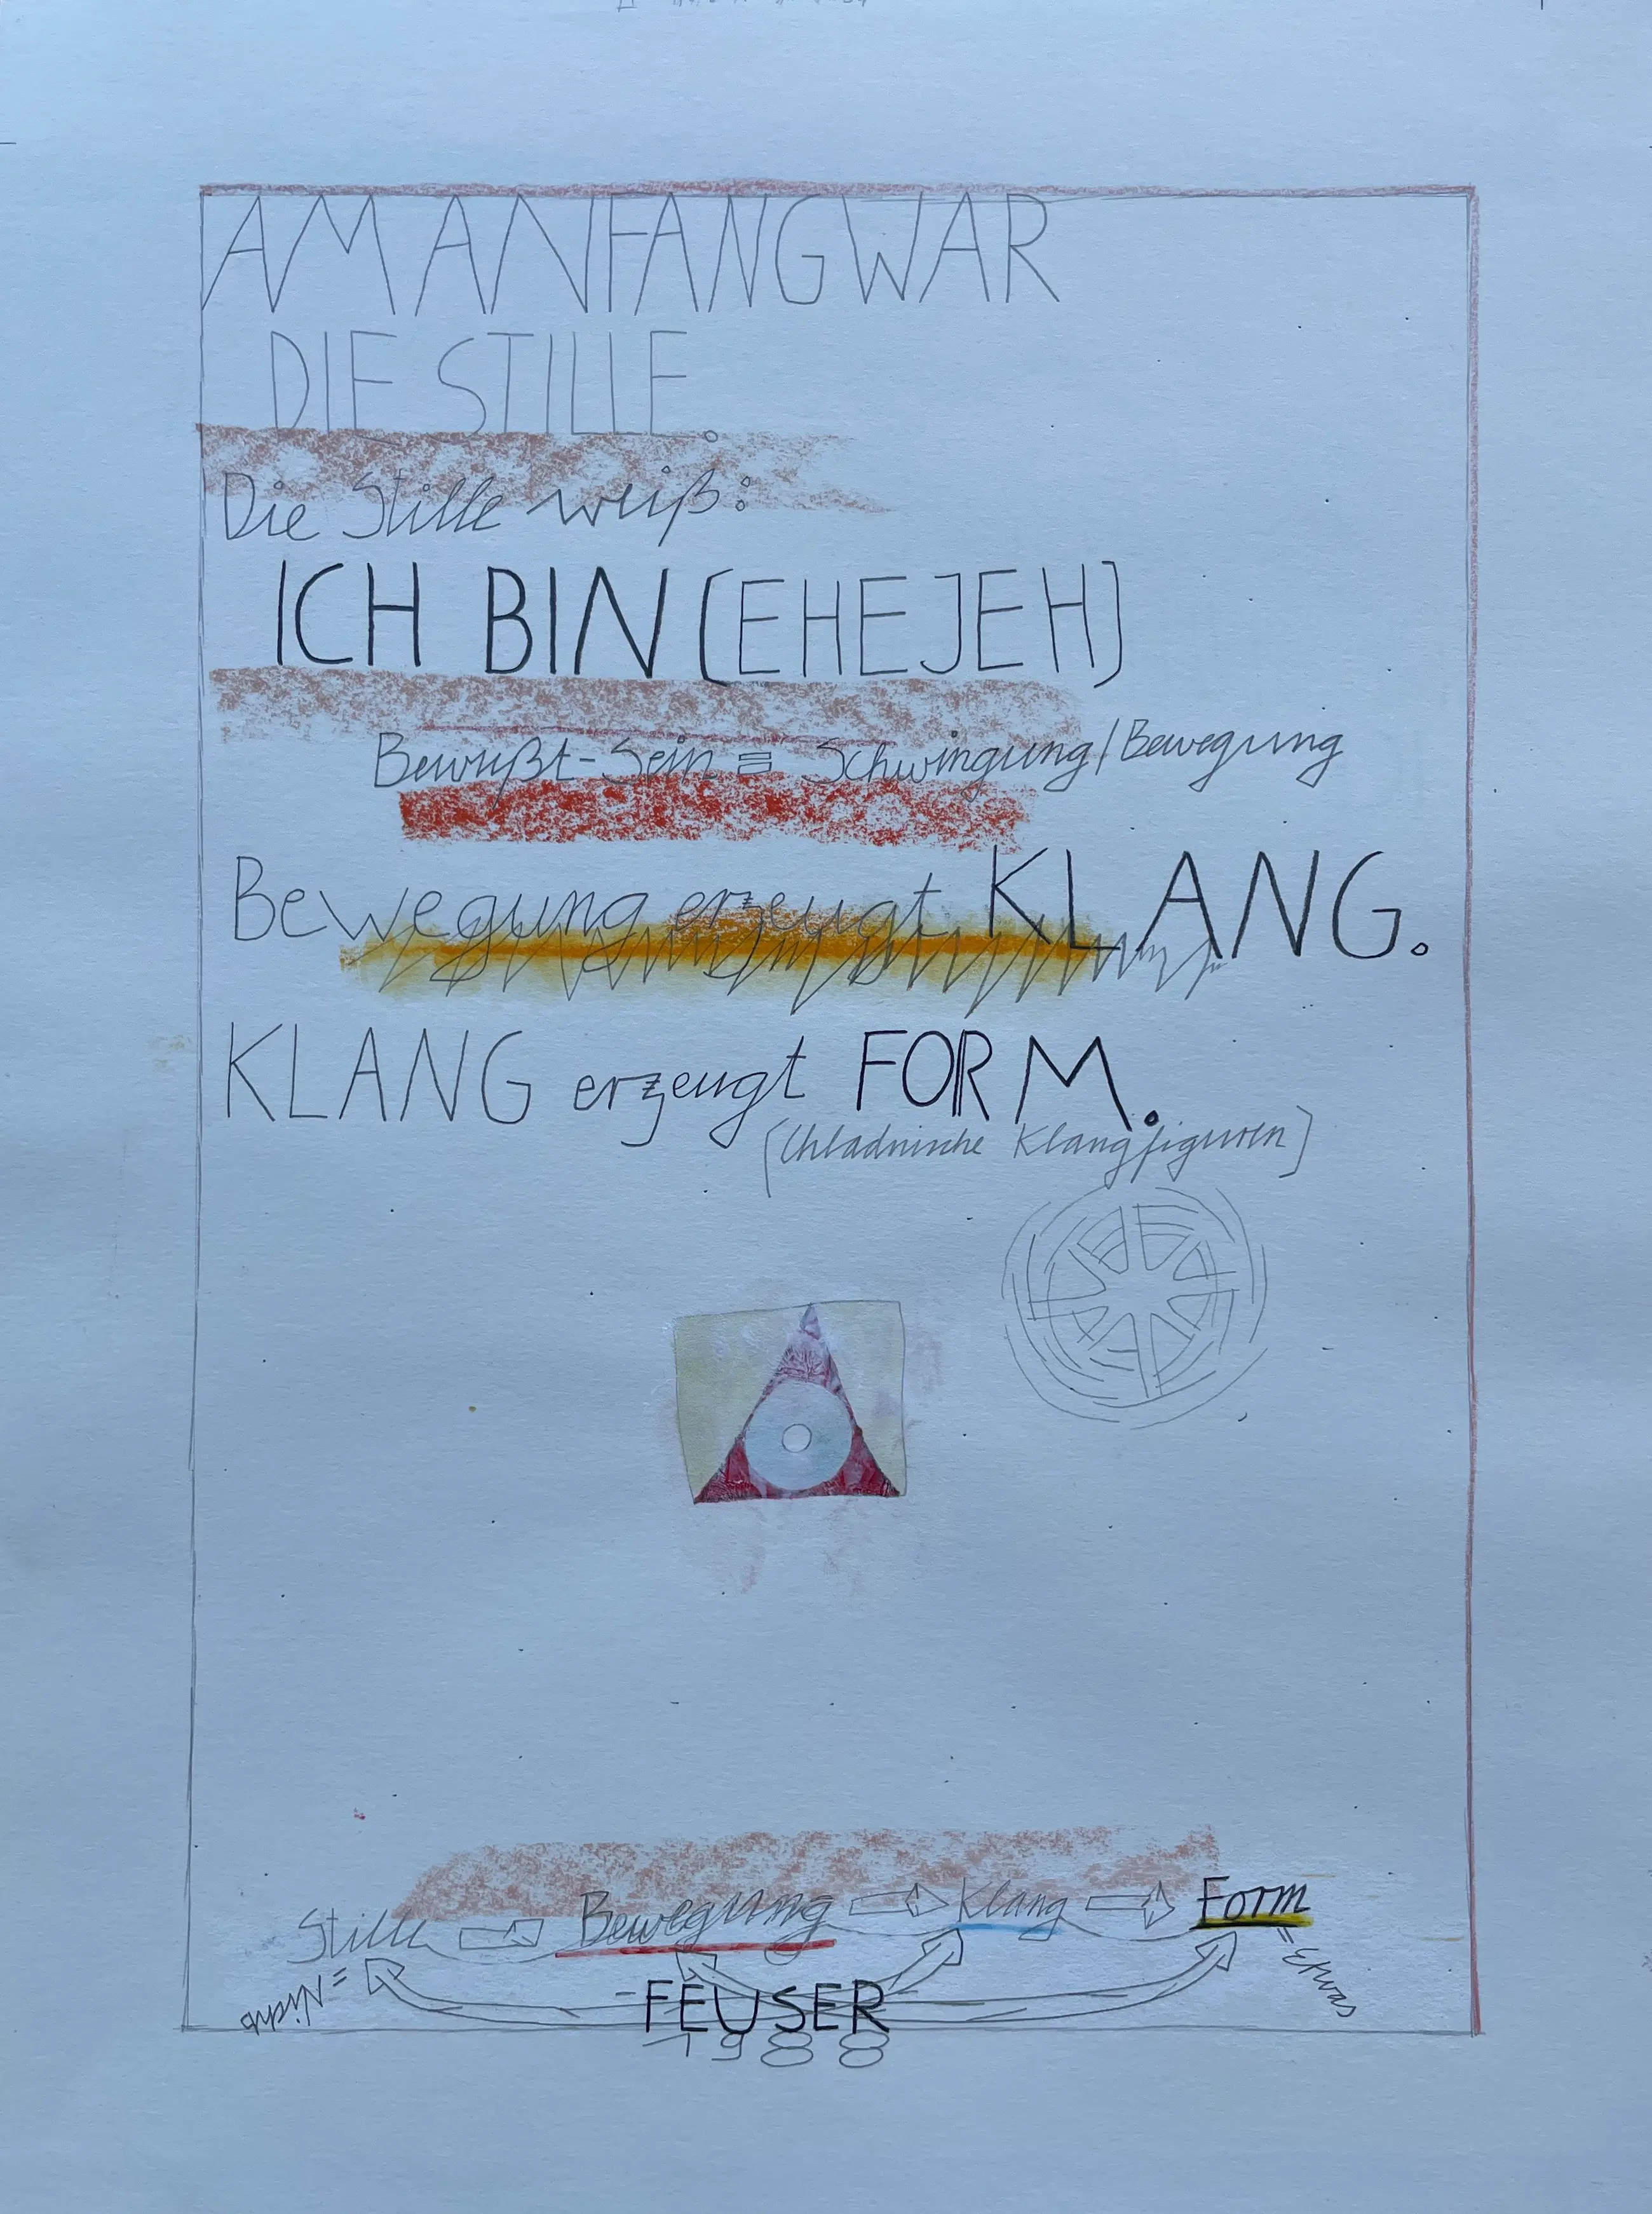 AM ANFANG WAR
DIE STILLE.
Die Stille weiß:
ICH BIN (EHEJEH)
Bewußt-Sein ≡ Schwingung/Bewegung
Bewegung erzeugt KLANG.
KLANG erzeugt FORM.
(Chladnische Klangfiguren)
Stille ⇒ Bewegung ⇒ Klang ⇒ Form
= Nichts
= Etwas
FEUSER
1988